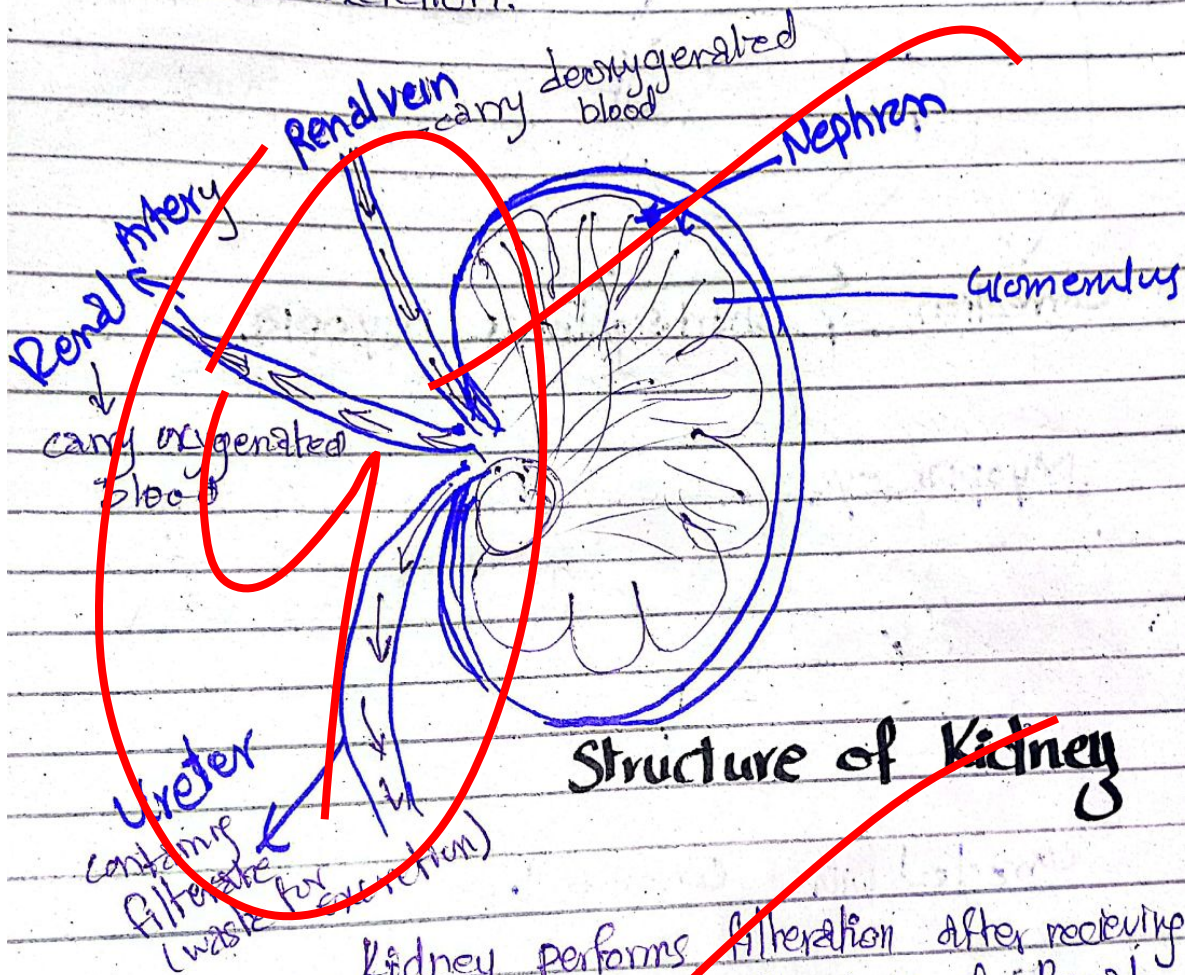 Renal vein
carry deoxygenated
blood
Nephron
Renal Artery
Glomerulus
carry oxygenated
blood
Ureter
containing
filterate
(waste for excretion)
Structure of Kidney
Kidney performs filteration after recieving